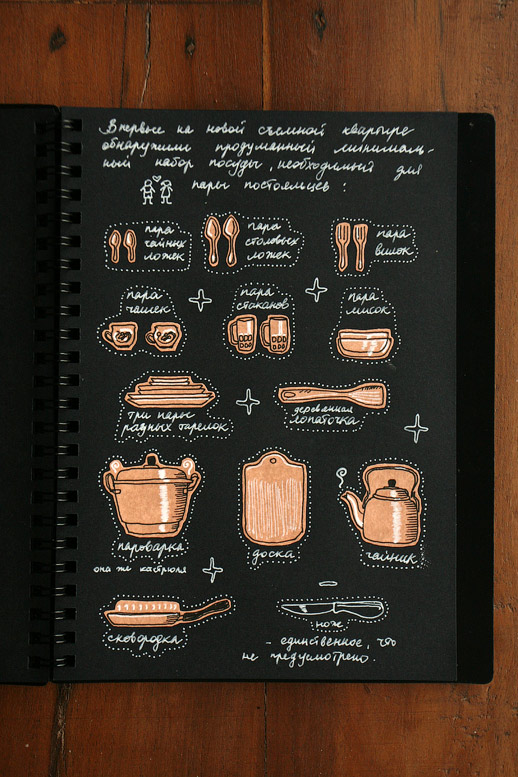 Впервые на новой съемной квартире
обнаружили продуманный минималь-
ный набор посуды, необходимый для
пары постояльцев:
пара
чайных
ложек
пара
столовых
ложек
пара
вилок
пара
чашек
пара
стаканов
пара
мисок
три пары
разных тарелок
деревянная
лопаточка
пароварка
она же кастрюля
доска
чайник
сковородка
нож
- единственное, что
не предусмотрено.